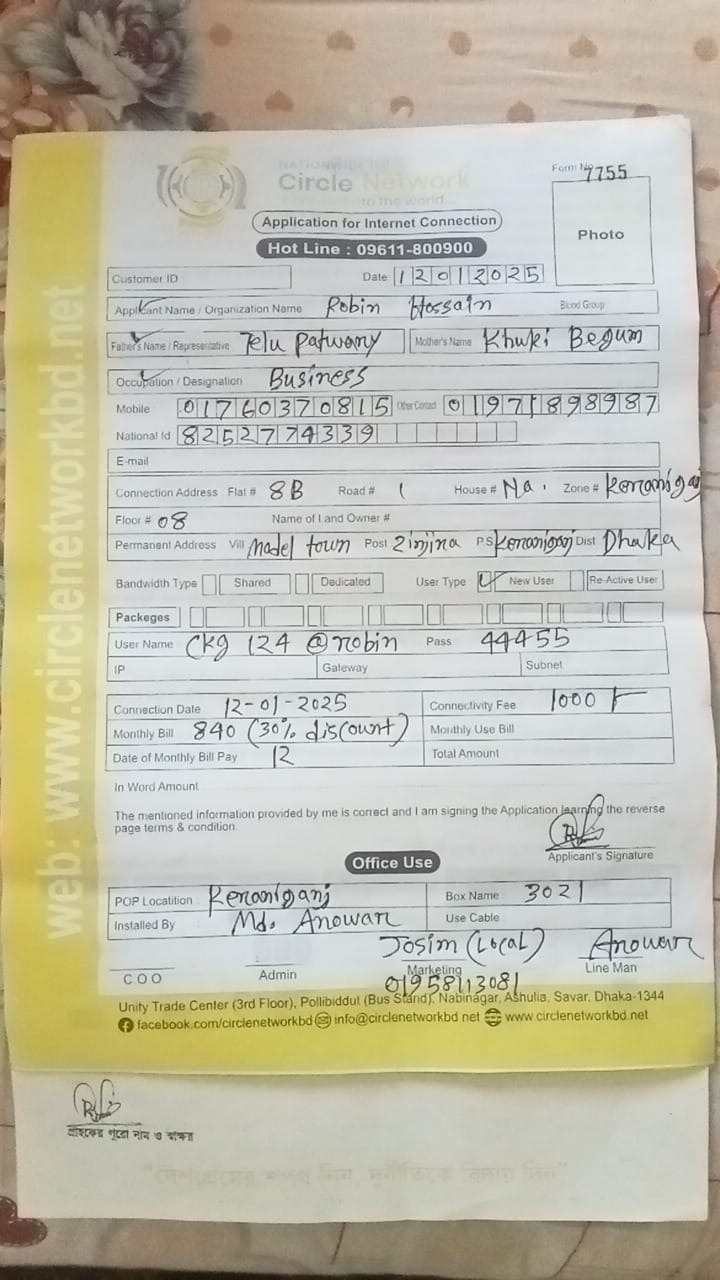 NATIONWIDE ISP
Circle Network
to the world...
Form No. 7755
Application for Internet Connection
Hot Line : 09611-800900
Photo
Customer ID
Date 12012025
Applicant Name / Organization Name Robin Hossain Blood Group
Father's Name / Representative Telu Patwary Mother's Name Khuki Begum
Occupation / Designation Business
Mobile 01760370815 Other Contact 01971898987
National Id 8252774339
E-mail
Connection Address Flat # 8B Road # 1 House # Na. Zone # Keraniganj
Floor # 08 Name of Land Owner #
Permanent Address Vill Model town Post Zinjira P.S Keraniganj Dist Dhaka
Bandwidth Type Shared Dedicated User Type New User Re-Active User
Packeges
User Name Ckg 124 @robin Pass 44455
IP Gateway Subnet
Connection Date 12-01-2025 Connectivity Fee 1000/-
Monthly Bill 840 (30% discount) Monthly Use Bill
Date of Monthly Bill Pay 12 Total Amount
In Word Amount
The mentioned information provided by me is correct and I am signing the Application learning the reverse
page terms & condition
Applicant's Signature
Office Use
POP Locatition Keraniganj Box Name 3021
Installed By Md. Anowar Use Cable
Josim (Local) Anowar
COO Admin Marketing Line Man
01958113081
Unity Trade Center (3rd Floor), Pollibiddut (Bus Stand), Nabinagar, Ashulia, Savar, Dhaka-1344
facebook.com/circlenetworkbd info@circlenetworkbd.net www.circlenetworkbd.net
web: www.circlenetworkbd.net
গ্রাহকের পুরো নাম ও স্বাক্ষর
"দেশপ্রেমের শপথ নিন, দুর্নীতিকে বিদায় দিন"